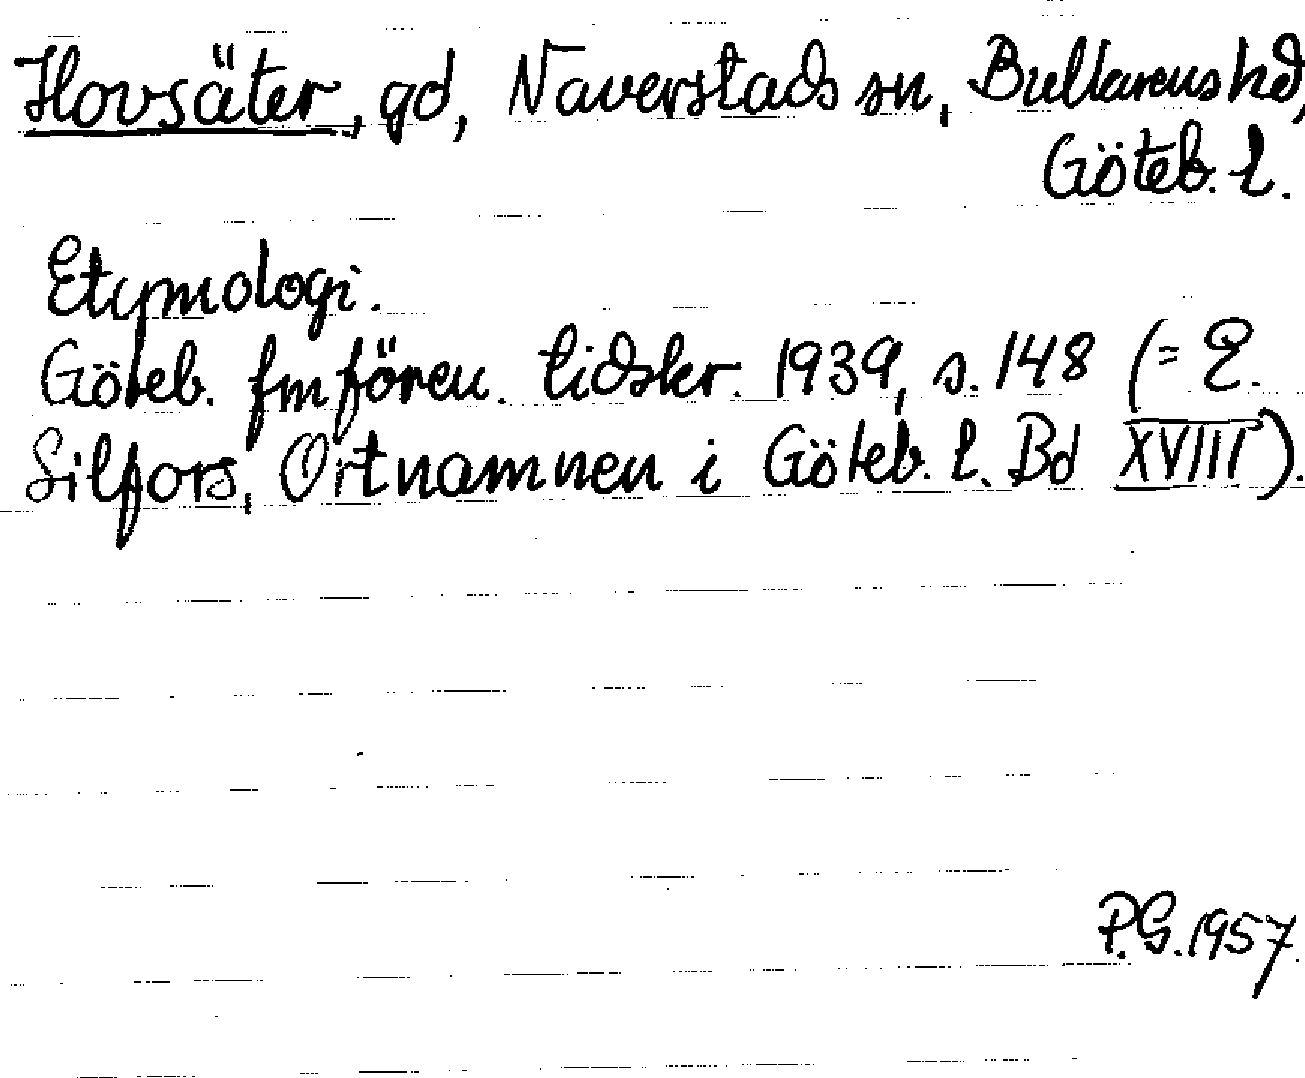 Hovsäter, gd, Naverstads sn, Bullarens hd,
Göteb. l.
Etymologi.
Göteb. fmfören. tidskr. 1939, s. 148 (= E.
Silfors, Ortnamnen i Göteb. l. Bd XVIII).
P.G. 1957.